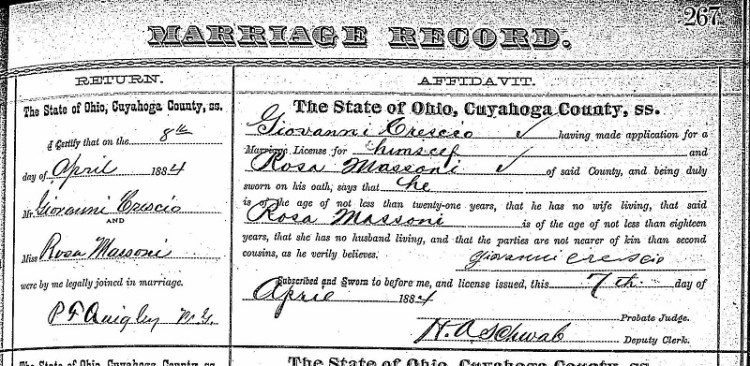 267
MARRIAGE RECORD.
RETURN.
The State of Ohio, Cuyahoga County, ss.
I Certify that on the 8th
day of April 1884
Mr. Giovanni Crescio
AND
Miss Rosa Massoni
were by me legally joined in marriage.
P F Quigley M. G.
AFFIDAVIT.
The State of Ohio, Cuyahoga County, ss.
Giovanni Crescio ✓ having made application for a
Marriage License for himself and
Rosa Massoni ✓ of said County, and being duly
sworn on his oath, says that he
is of the age of not less than twenty-one years, that he has no wife living, that said
Rosa Massoni is of the age of not less than eighteen
years, that she has no husband living, and that the parties are not nearer of kin than second
cousins, as he verily believes. giovanni crescio
Subscribed and Sworn to before me, and license issued, this 7th day of
April 1884
Probate Judge.
H. A Schwab Deputy Clerk.
The State of Ohio, Cuyahoga County, ss.
The State of Ohio, Cuyahoga County, ss.